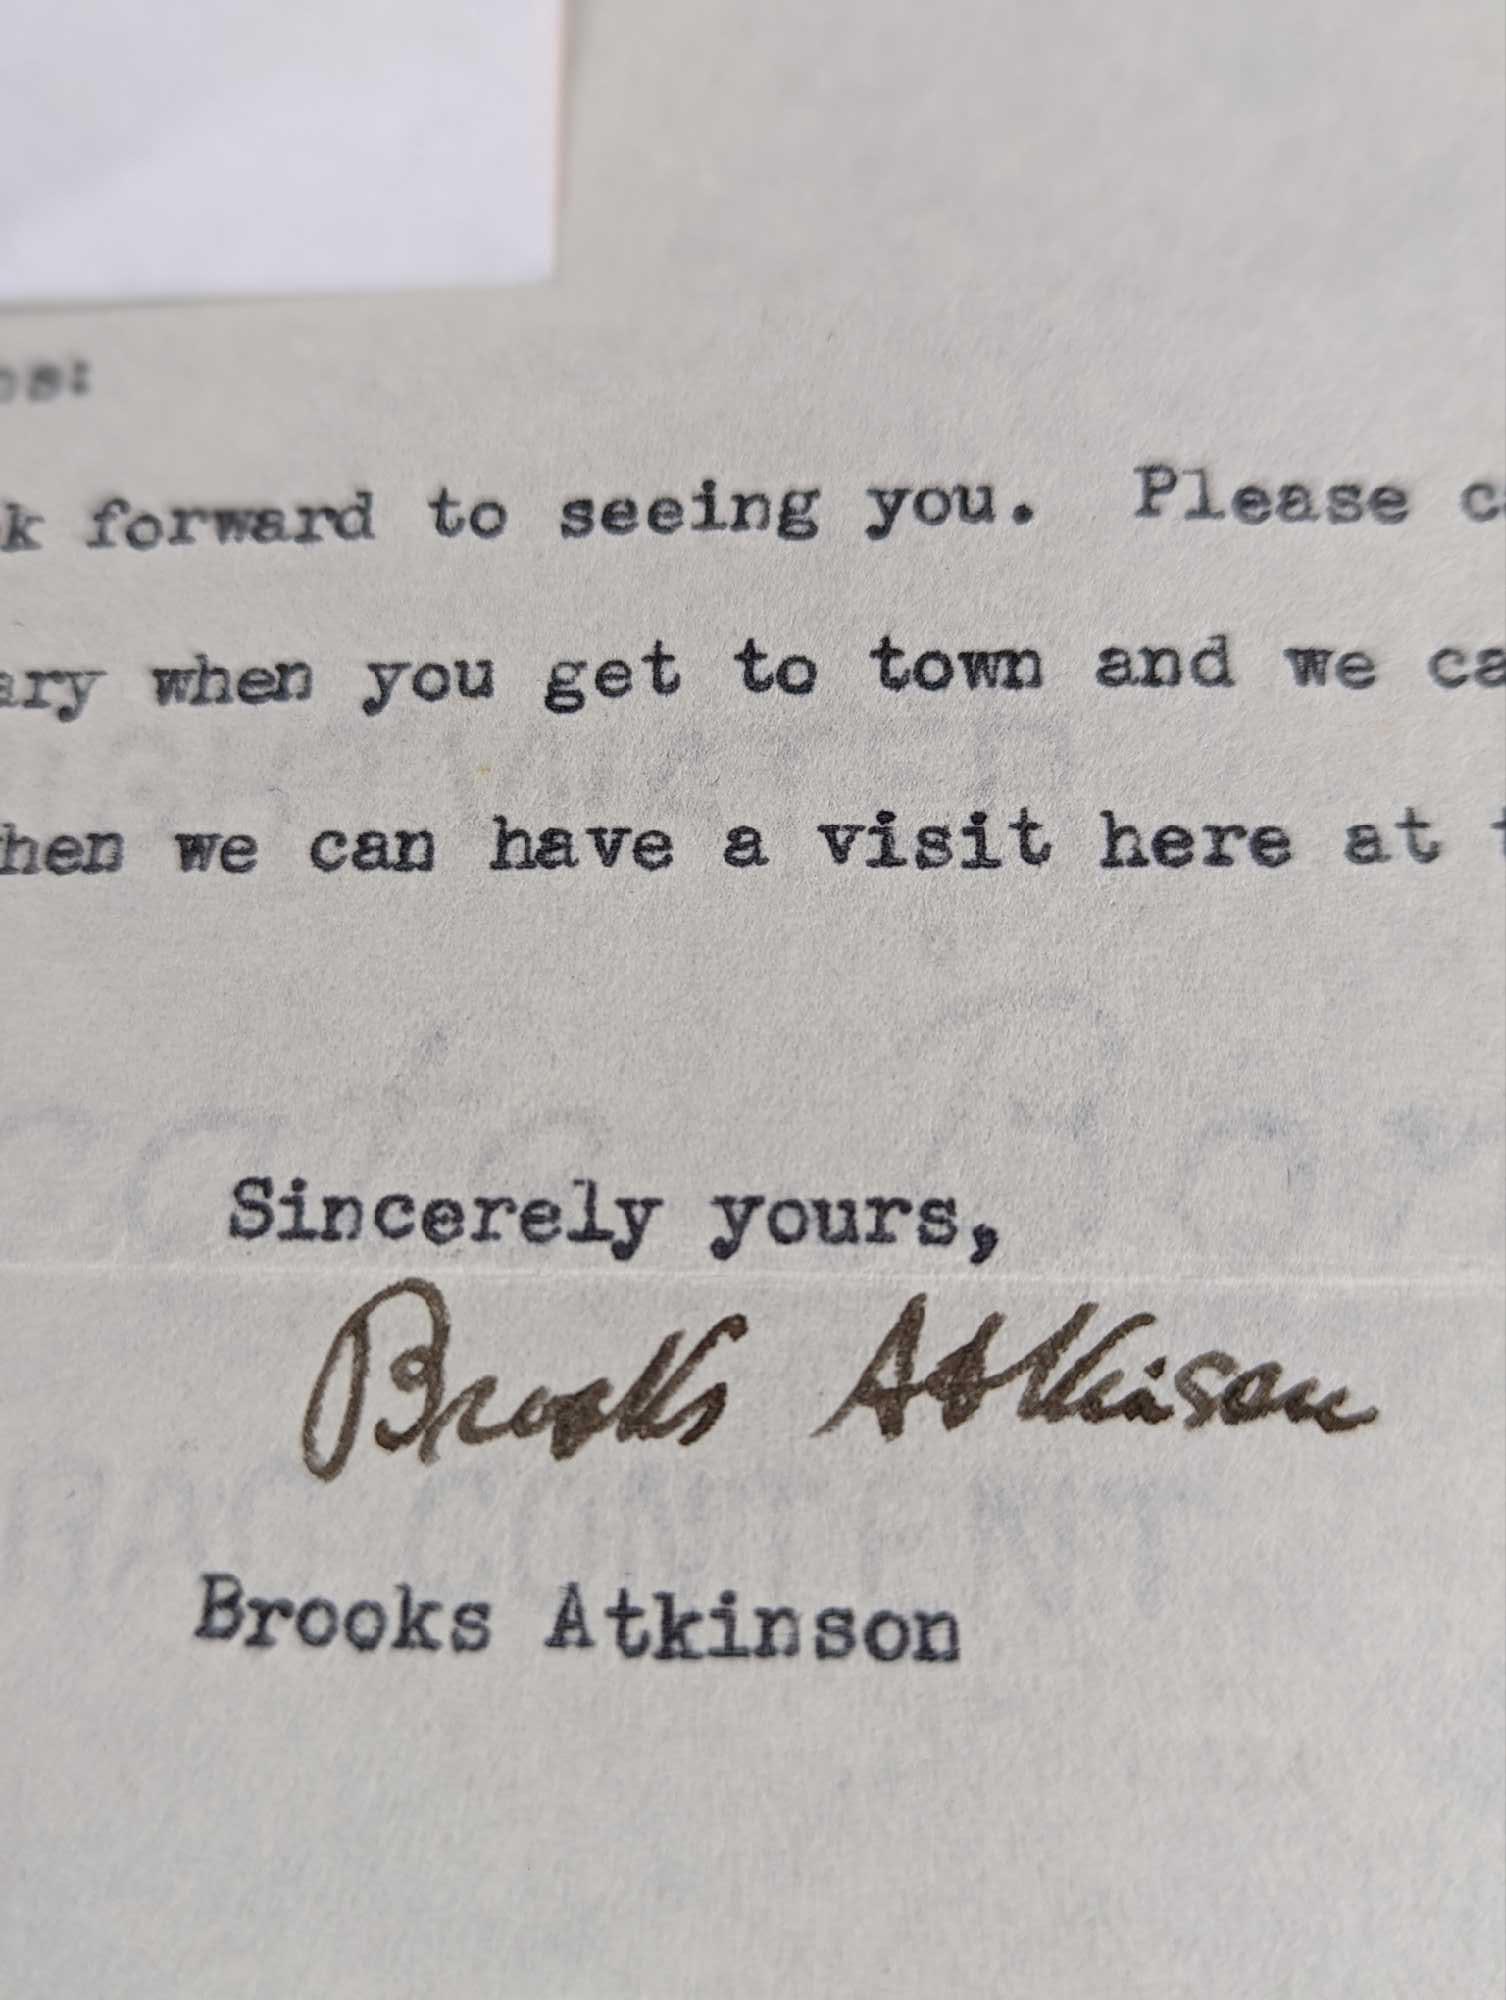 forward to seeing you. Please
when you get to town and we
we can have a visit here at
Sincerely yours,
Brooks Atkinson
Brooks Atkinson